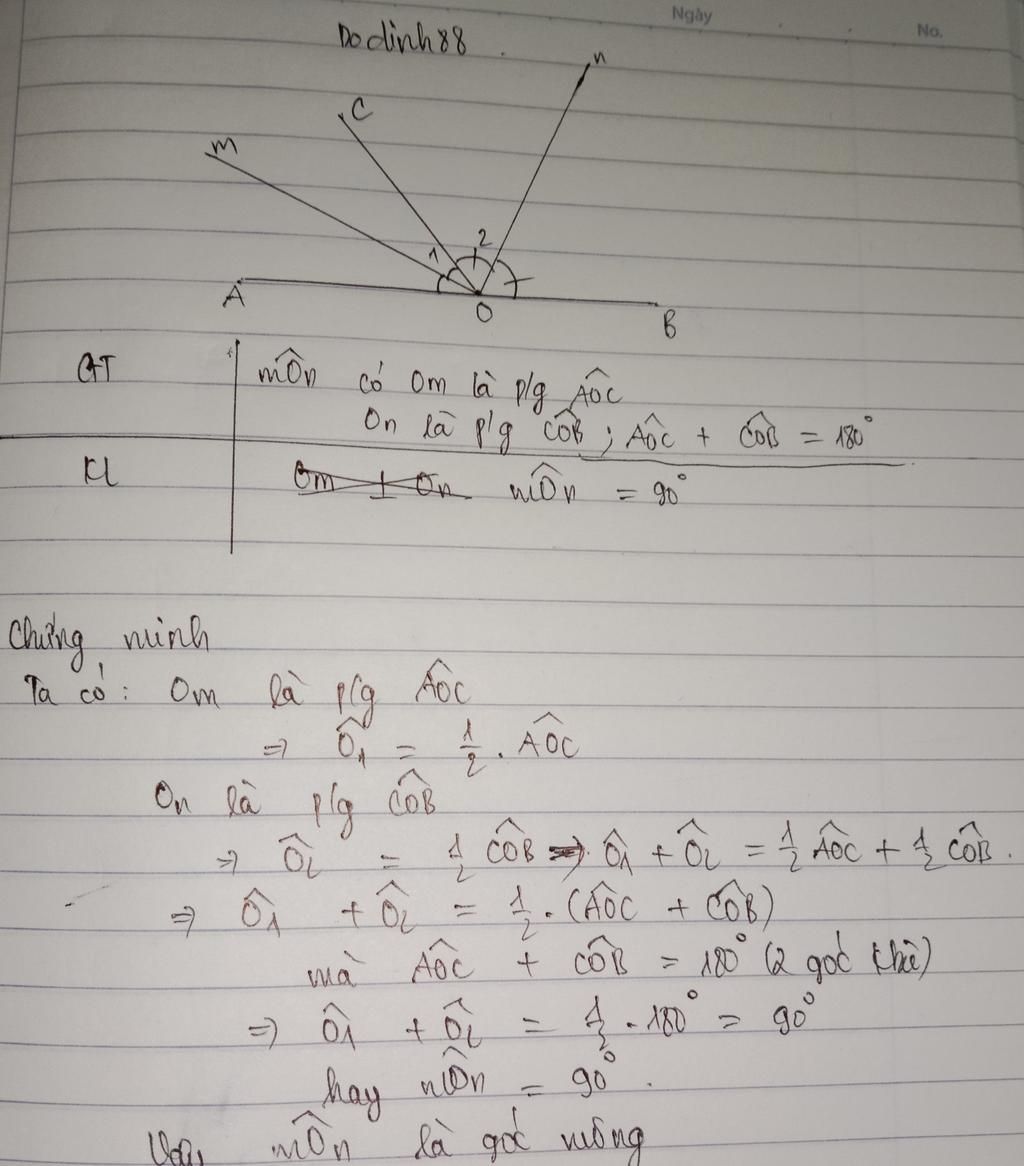 Ngày
No.
Dodinh88
n
C
m
1
2
A
O
B
GT
mÔn có Om là p/g AÔC
On là p/g CÔB ; AÔC + CÔB = 180°
KL
Om ⊥ On mÔn = 90°
Chứng minh
Ta có : Om là p/g AÔC
=> Ô1 = 1/2 . AÔC
On là p/g CÔB
=> Ô2 = 1/2 CÔB => Ô1 + Ô2 = 1/2 AÔC + 1/2 CÔB .
=> Ô1 + Ô2 = 1/2 . (AÔC + CÔB)
mà AÔC + CÔB = 180° (2 góc kề bù)
=> Ô1 + Ô2 = 1/2 . 180° = 90°
hay mÔn = 90° .
Vậy mÔn là góc vuông